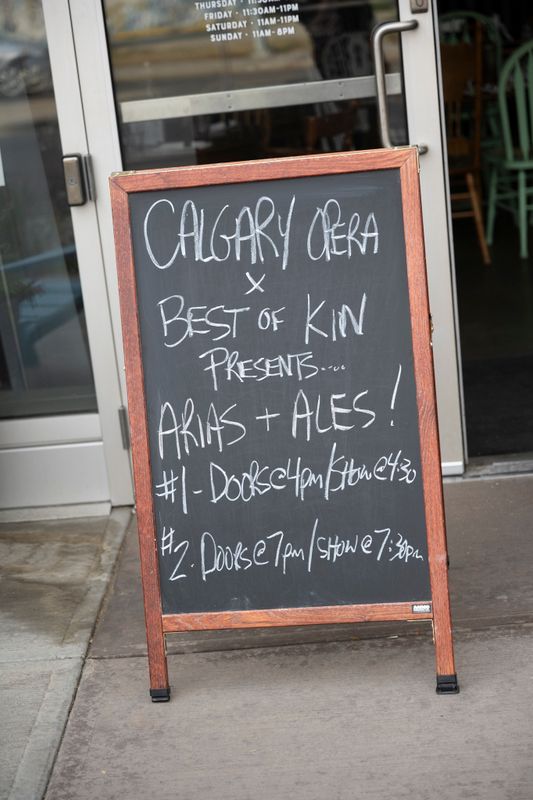 THURSDAY • 11:30AM-11PM
FRIDAY • 11:30AM-11PM
SATURDAY • 11AM-11PM
SUNDAY • 11AM-8PM
CALGARY OPERA
x
BEST OF KIN
PRESENTS....
ARIAS + ALES!
#1-DOORS@4pm/SHOW@4:30
#2-DOORS@7pm/SHOW@7:30pm